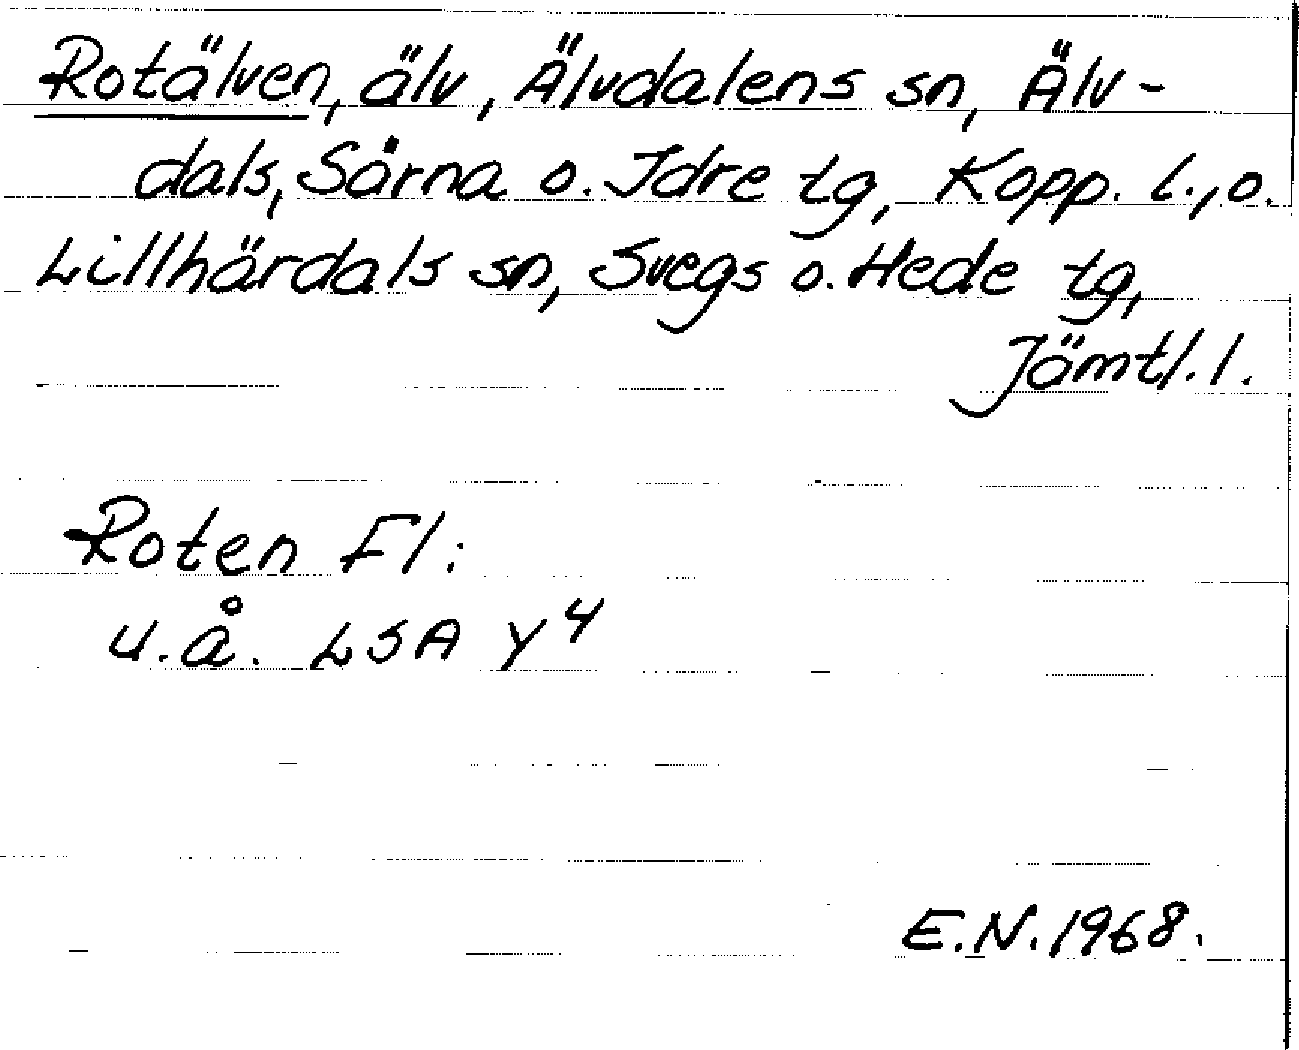 Rotälven, älv, Älvdalens sn, Älv-
dals, Särna o. Idre tg, Kopp. l., o.
Lillhärdals sn, Svegs o. Hede tg,
Jämtl. l.
Roten Fl:
u.å. LSA Y4
E.N. 1968.